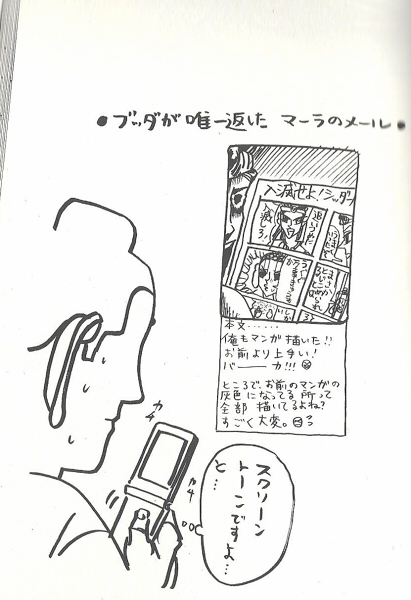 ●ブッダが唯一返した マーラのメール●
入滅せよ!シッダル
滅しろ!
本文……
俺もマンガ描いた!!
お前より上手い!
バーーカ!!!
ところでお前のマンガの
灰色になってる所って
全部描いてるよね?
すごく大変。
カチ
カチ
スクリーン
トーンですよ…
と…